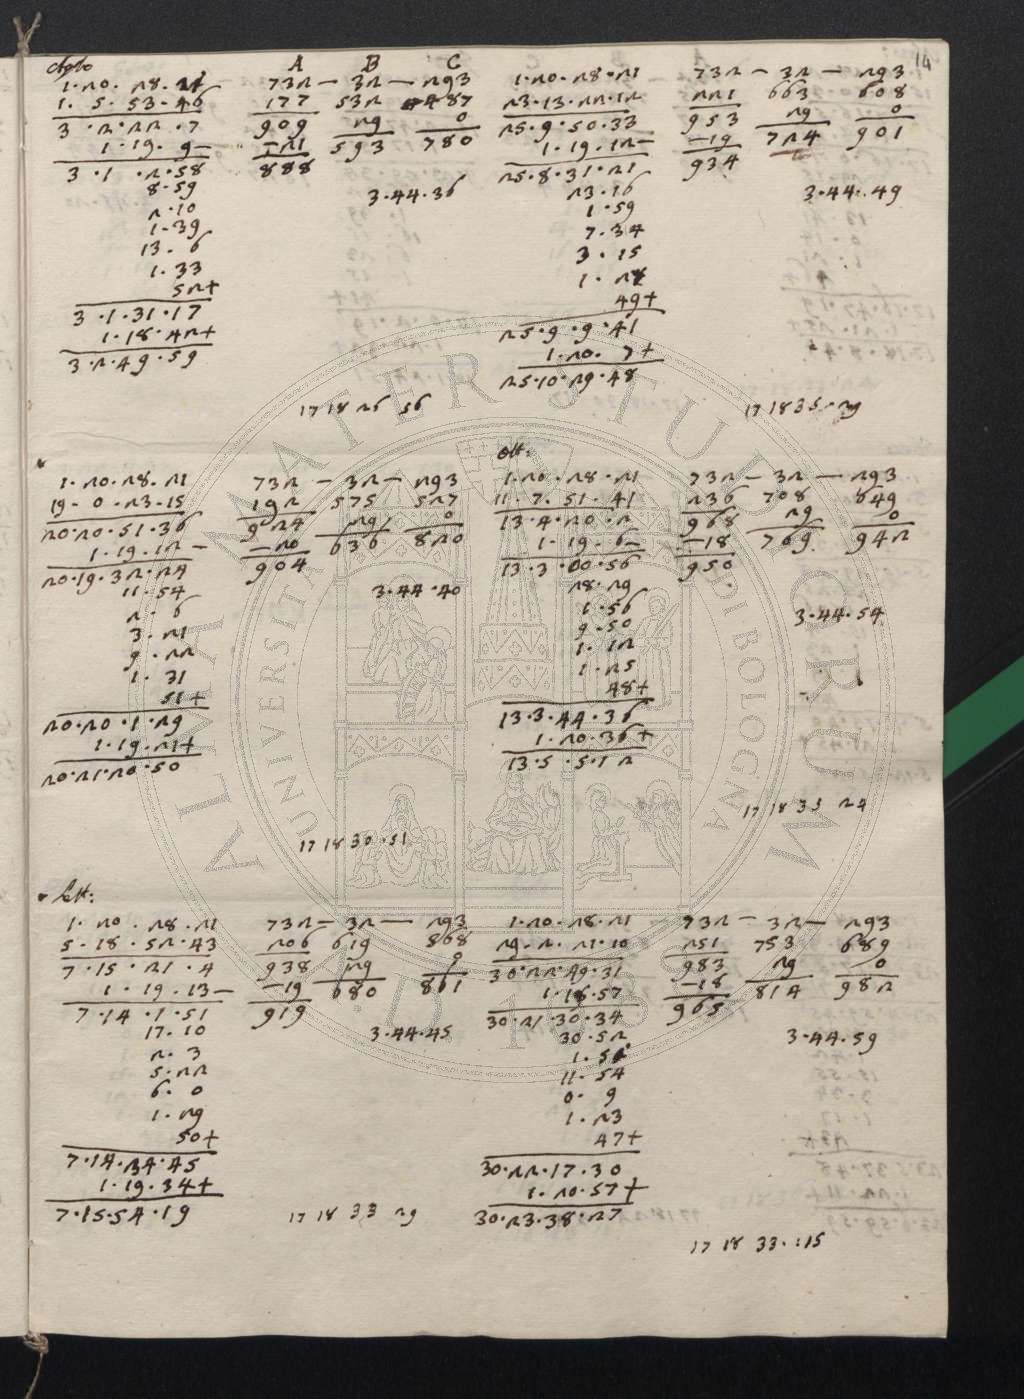 14
A B C
1.20.28.21 732 — 32 — 293
1.5.53.46 177 532 487
3.2.22.7 909 29 0
1.19.9— —21 593 780
3.1.2.58 888
8.59
2.10 3.44.36
1.39
13.6
1.33
52+
3.1.31.17
1.18.42+
3.2.49.59
17 18 26 56
1.20.28.21 732 — 32 — 293
23.13.22.12 221 663 608
25.9.50.33 953 29 0
1.19.12— —19 724 901
25.8.31.21 934
23.16 3.44.49
1.59
7.34
3.15
1.27
49+
25.9.9.41
1.20.7+
25.10.29.48
17 18 35 29
1.20.28.21 732 — 32 — 293
19.0.23.15 192 575 527
20.20.51.36 924 29 0
1.19.12— —20 636 820
20.19.32.24 904
11.54 3.44.40
2.6
3.21
9.22
1.31
51+
20.20.1.29
1.19.21+
20.21.20.50
17 18 30.51
1.20.28.21 732 — 32 — 293
11.7.51.41 236 708 649
13.4.20.2 968 29 0
1.19.6— —18 769 942
13.3.00.56 950
28.29
1.56 3.44.54
9.50
1.12
1.25
48+
13.3.44.36
1.20.36+
13.5.5.12
17 18 33 24
1.20.28.21 732 — 32 — 293
5.18.52.43 206 619 868
7.15.21.4 938 29 0
1.19.13— —19 680 861
7.14.1.51 919
17.10 3.44.45
2.3
5.22
6.0
1.29
50+
7.14.34.45
1.19.34+
7.15.54.19
17 18 33 29
1.20.28.21 732 — 32 — 293
29.2.21.10 251 753 689
30.22.49.31 983 29 0
1.18.57 —18 814 982
30.21.30.34 965
30.52 3.44.59
1.52
11.54
0.9
1.23
47+
30.22.17.30
1.20.57+
30.23.38.27
17 18 33.:15
ALMA MATER STUDIORUM
UNIVERSITÀ DI BOLOGNA
A.D. 1088